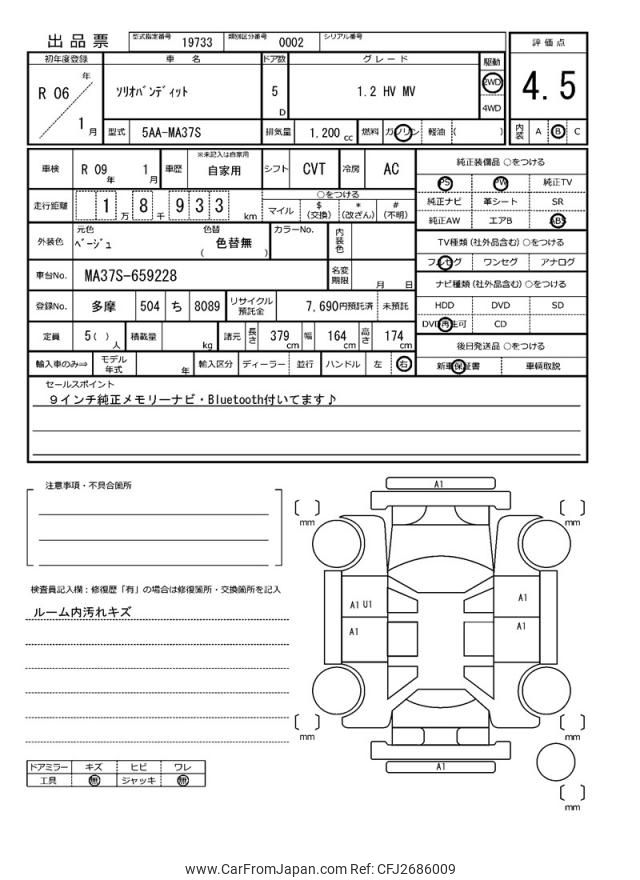 出品票 型式指定番号 19733 類別区分番号 0002 シリアル番号
評価点
初年度登録 車名 ドア数 グレード 駆動
R 06 年 1 月 ソリオバンディット 5 D 1.2 HV MV 2WD 4WD
4.5
型式 5AA-MA37S 排気量 1.200 cc 燃料 ガソリン 軽油 ( )
内装 A B C
車検 R 09 年 1 月 車歴 ※未記入は自家用 自家用 シフト CVT 冷房 AC
走行距離 1 万 8 千 9 3 3 km
○をつける
マイル $(交換) *(改ざん) #(不明)
外装色 元色 ベージュ 色替 ( 色替無 ) カラーNo. 内装色
車台No. MA37S-659228 名変期限 月 日
登録No. 多摩 504 ち 8089 リサイクル預託金 7,690円預託済 未預託
定員 5( )人 積載量 kg 諸元 長さ 379 cm 幅 164 cm 高さ 174 cm
輸入車のみ⇒ モデル年式 年 輸入区分 ディーラー 並行 ハンドル 左 右
純正装備品 ○をつける
PS PW 純正TV
純正ナビ 革シート SR
純正AW エアB ABS
TV種類 (社外品含む) ○をつける
フルセグ ワンセグ アナログ
ナビ種類 (社外品含む) ○をつける
HDD DVD SD
DVD再生可 CD
後日発送品 ○をつける
新車保証書 車輌取説
セールスポイント
９インチ純正メモリーナビ・Bluetooth付いてます♪
注意事項・不具合箇所
検査員記入欄：修復歴「有」の場合は修復箇所・交換箇所を記入
ルーム内汚れキズ
A1
[ ] mm
[ ] mm
A1 U1
A1
A1
A1
[ ] mm
[ ] mm
A1
[ ] mm
ドアミラー キズ ヒビ ワレ
工具 無 ジャッキ 無
www.CarFromJapan.com Ref: CFJ2686009